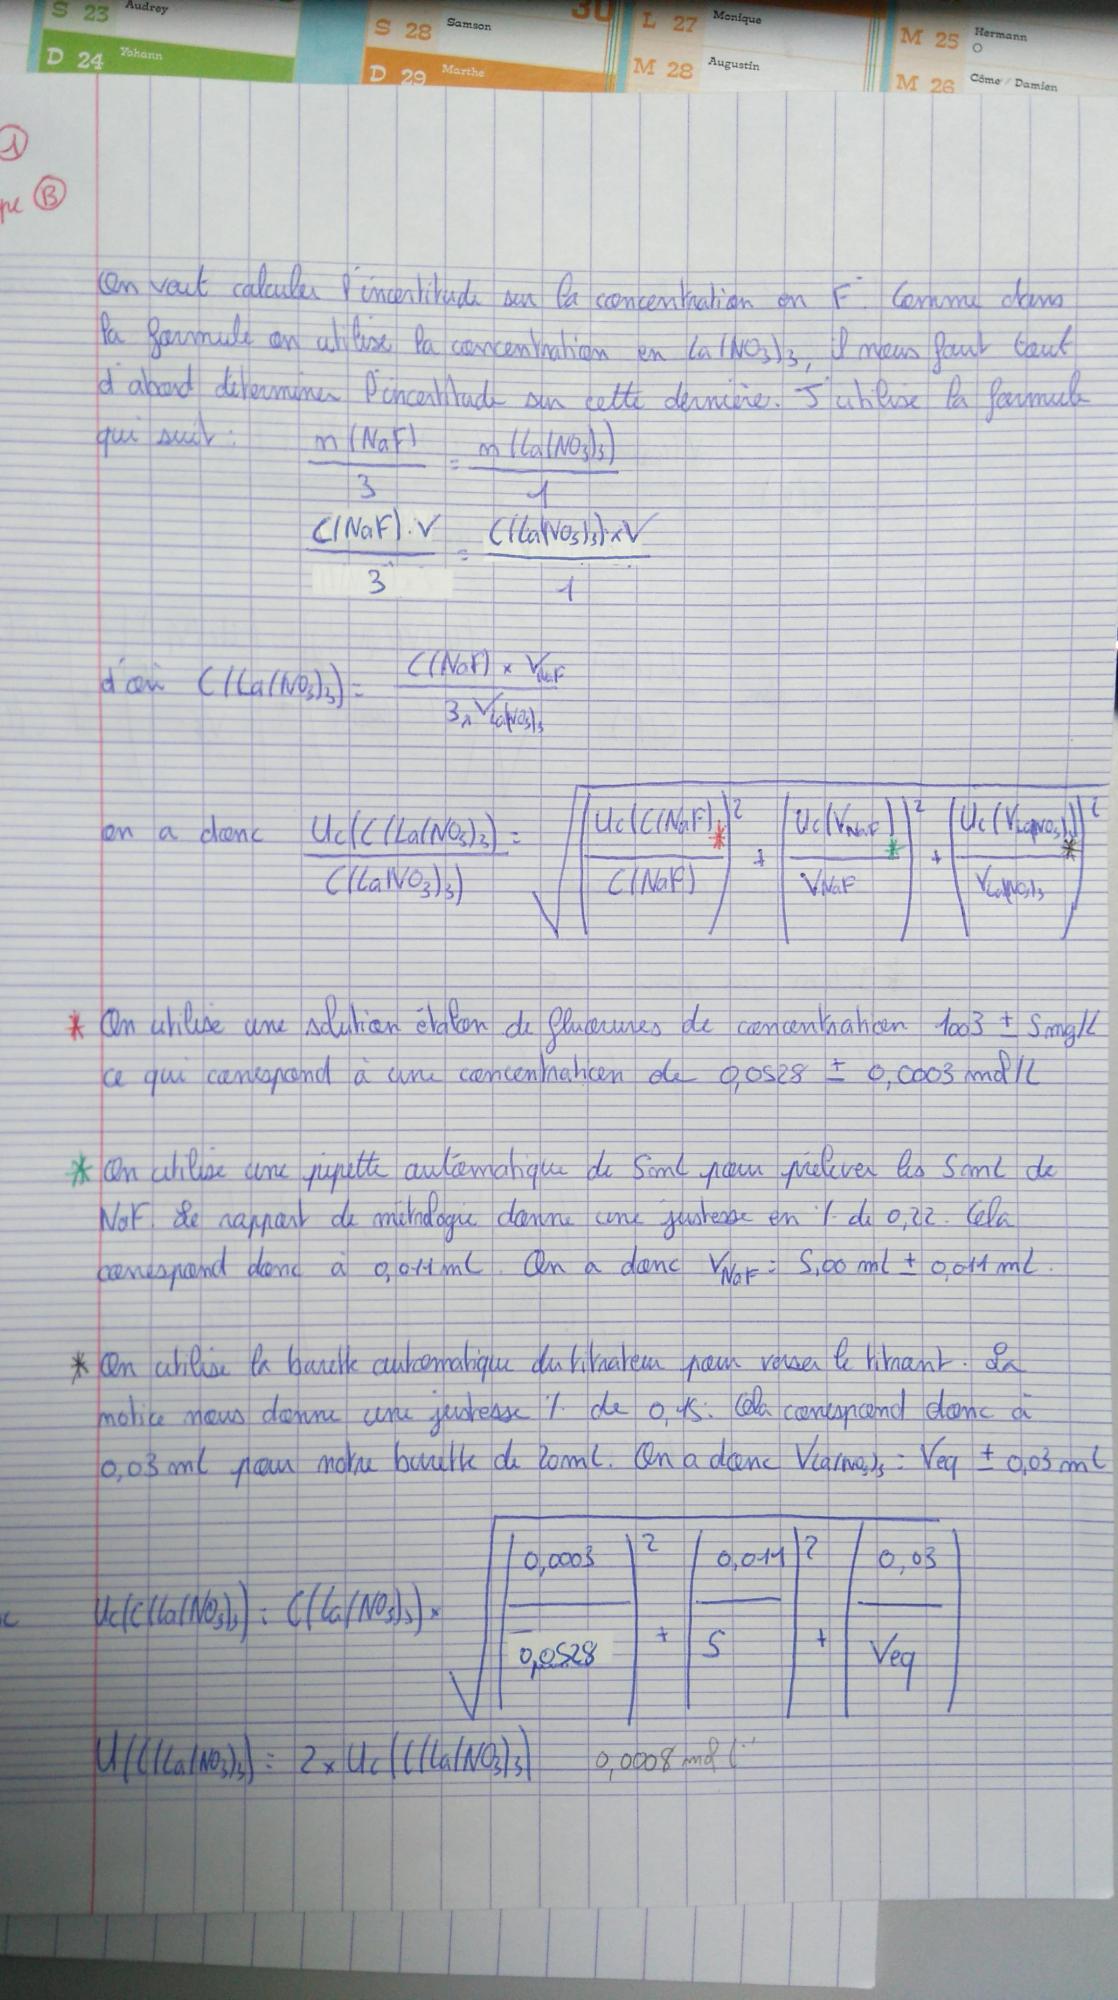 S 23 Audrey
D 24 Yohann
S 28 Samson
D 29 Marthe
30
L 27 Monique
M 28 Augustin
M 25 Hermann
M 26 Côme / Damien
1
pe B
On veut calculer l'incertitude sur la concentration en F⁻. Comme dans
la formule on utilise la concentration en La(NO3)3, il nous faut tout
d'abord déterminer l'incertitude sur cette dernière. J'utilise la formule
qui suit : n(NaF)/3 = n(La(NO3)3)/1
C(NaF).V/3 = C(La(NO3)3)×V/1
d'où C(La(NO3)3) = C(NaF) × VNaF / 3 × VLa(NO3)3
on a donc Uc(C(La(NO3)3) / C(La(NO3)3) = √ (Uc(C(NaF)* / C(NaF))² + (Uc(VNaF)* / VNaF)² + (Uc(VLa(NO3)3)* / VLa(NO3)3)²
* On utilise une solution étalon de fluorures de concentration 1003 ± 5mg/L
ce qui correspond à une concentration de 0,0528 ± 0,0003 mol/L
* On utilise une pipette automatique de 5mL pour prélever les 5mL de
NaF. Le rapport de métrologie donne une justesse en % de 0,22. Cela
correspond donc à 0,011mL. On a donc VNaF = 5,00 mL ± 0,011 mL.
* On utilise la burette automatique du titrateur pour verser le titrant. La
notice nous donne une justesse % de 0,15. Cela correspond donc à
0,03 mL pour notre burette de 20mL. On a donc VLa(NO3)3 = Veq ± 0,03 mL
Uc(C(La(NO3)3) = C(La(NO3)3) × √ (0,0003 / 0,0528)² + (0,011 / 5)² + (0,03 / Veq)
U(C(La(NO3)3) = 2 × Uc(C(La(NO3)3) 0,0008 mol L⁻¹